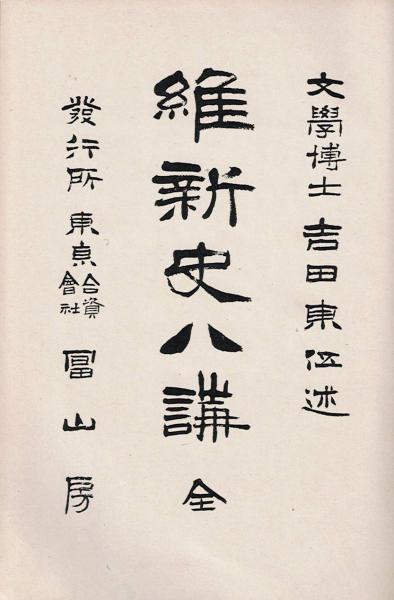 文學博士 吉田東伍述
維新史八講 全
發行所 東京 合資會社 冨山房